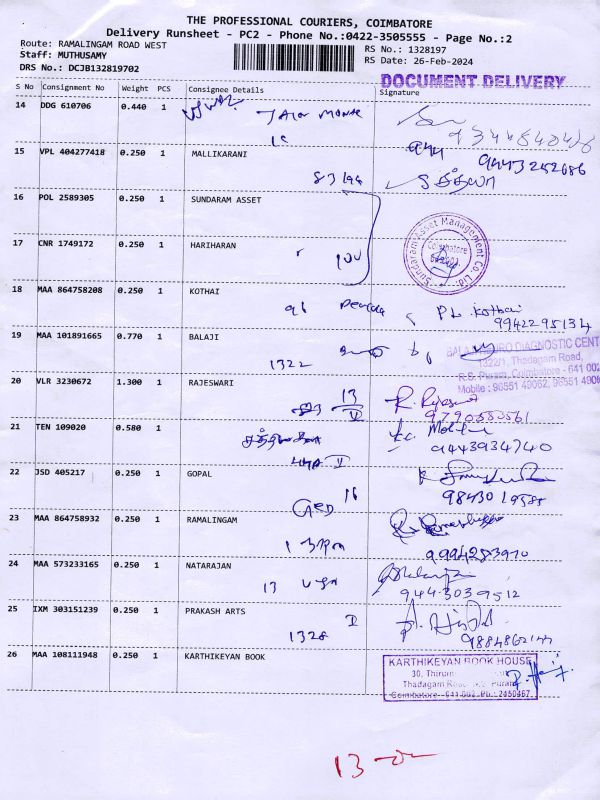 THE PROFESSIONAL COURIERS, COIMBATORE
Delivery Runsheet - PC2 - Phone No.:0422-3505555 - Page No.:2
Route: RAMALINGAM ROAD WEST
RS No.: 1328197
Staff: MUTHUSAMY
RS Date: 26-Feb-2024
DRS No.: DCJB132819702
DOCUMENT DELIVERY
S No Consignment No Weight PCS Consignee Details Signature
14 DDG 610706 0.440 1
15 VPL 404277418 0.250 1 MALLIKARANI
9443252686
16 POL 2589305 0.250 1 SUNDARAM ASSET
Sundaram Asset Management Co. Ltd.
Coimbatore
17 CNR 1749172 0.250 1 HARIHARAN
18 MAA 864758208 0.250 1 KOTHAI
PL. Kothai
9942295134
19 MAA 101891665 0.770 1 BALAJI
1322
DIAGNOSTIC CENT
1822/1, Thadagam Road,
R.S. Puram, Coimbatore - 641 002
Mobile : 98551 49062, 98551 4906
20 VLR 3230672 1.300 1 RAJESWARI
13
V
21 TEN 109020 0.580 1
9443934740
22 JSD 405217 0.250 1 GOPAL
16
23 MAA 864758932 0.250 1 RAMALINGAM
9994283970
24 MAA 573233165 0.250 1 NATARAJAN
13
9443039512
25 IXM 303151239 0.250 1 PRAKASH ARTS
1328 I
26 MAA 108111948 0.250 1 KARTHIKEYAN BOOK
KARTHIKEYAN BOOK HOUSE
Coimbatore - 641 002. Ph.: 2450467
13